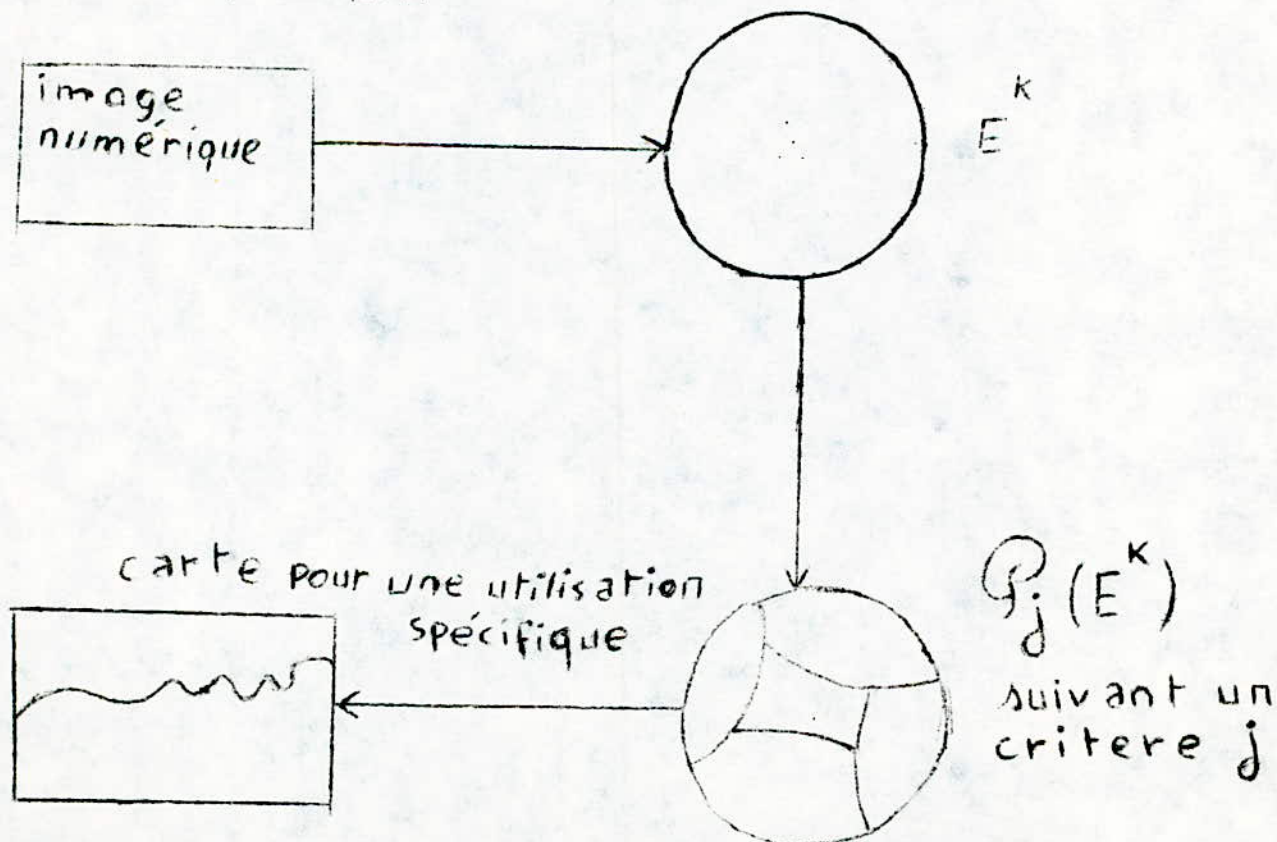 image
numérique
E^K
carte pour une utilisation
spécifique
P_j(E^K)
suivant un
critere j